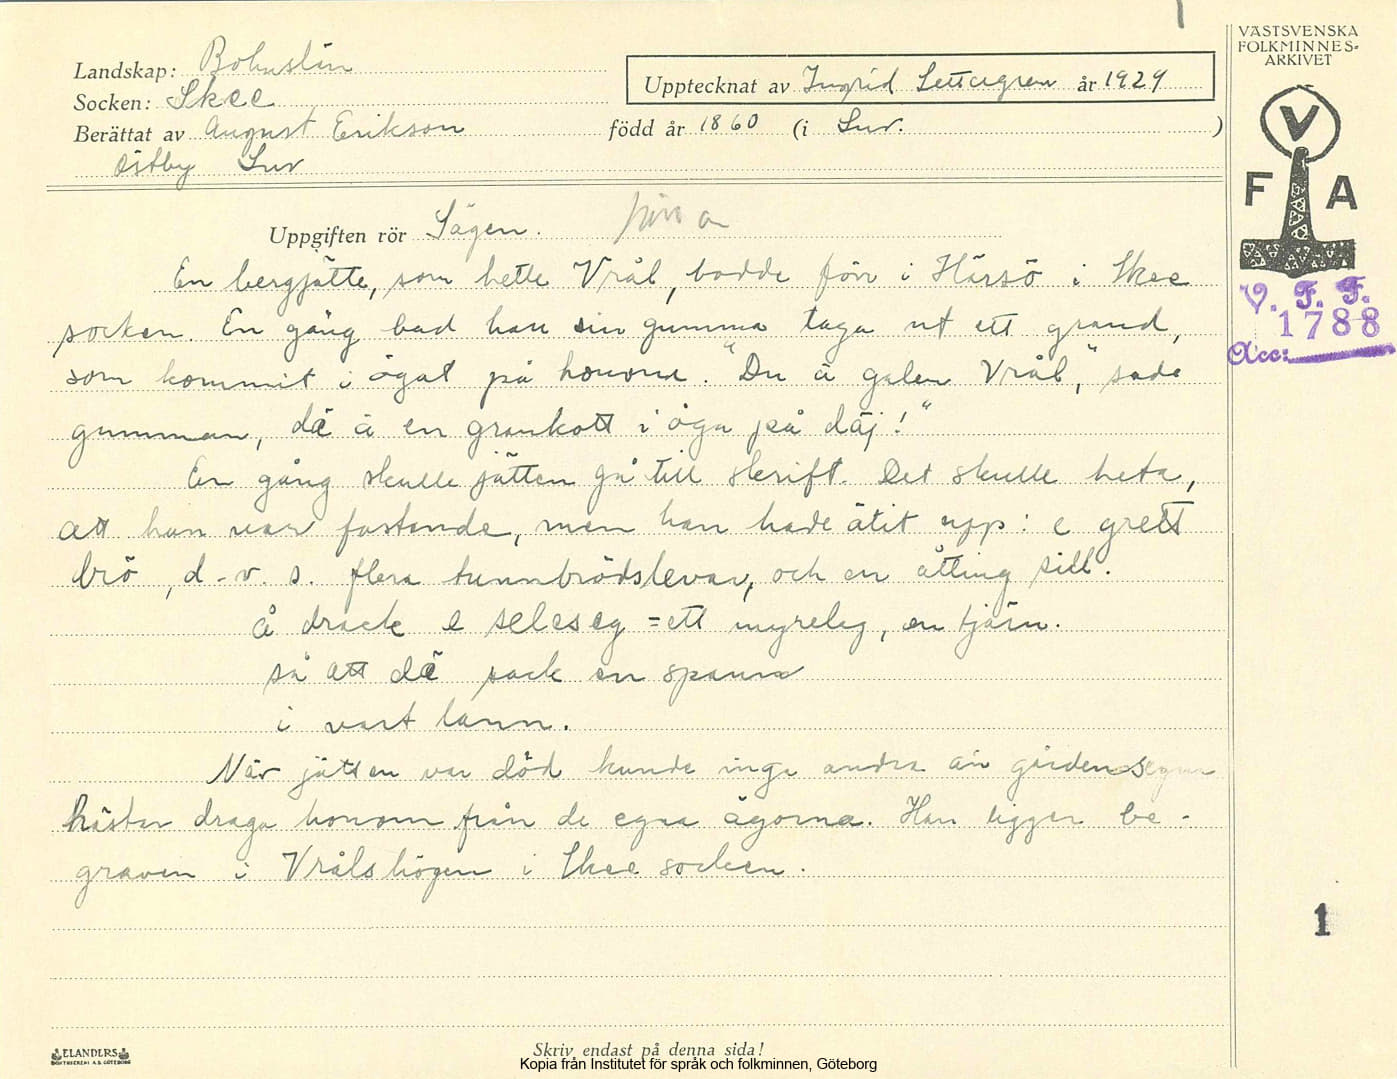 Landskap: Bohuslän
Socken: Skee
Berättat av August Erikson
Östby Lur
Upptecknat av Ingrid år 1929
född år 1860 (i Lur.)
VÄSTSVENSKA
FOLKMINNES-
ARKIVET
V
F A
V. F. F.
1788
Acc:
Uppgiften rör Sägen.
En bergjätte, som hette Vrål, bodde förr i Hårsö i Skee
socken. En gång bad han sin gumma taga ut ett grand,
som kommit i ögat på honom. "Du ä galen Vrål," sade
gumman, dä ä en grankott i öga på däj!"
En gång skulle jätten gå till skrift. Det skulle heta,
att han var fastande, men han hade ätit upp: e grett
brö, d.v.s. flera tunnbrödslevar, och en åtting sill.
å drack e seleseg = ett myreleg, en tjärn.
så att dä sack en spann
i vart lann.
När jätten var död kunde inga andra än gårdens egna
hästar draga honom från de egna ägorna. Han ligger be-
graven i Vrålshögen i Skee socken.
1
ELANDERS
BOKTRYCKERI A.B. GÖTEBORG
Skriv endast på denna sida!
Kopia från Institutet för språk och folkminnen, Göteborg